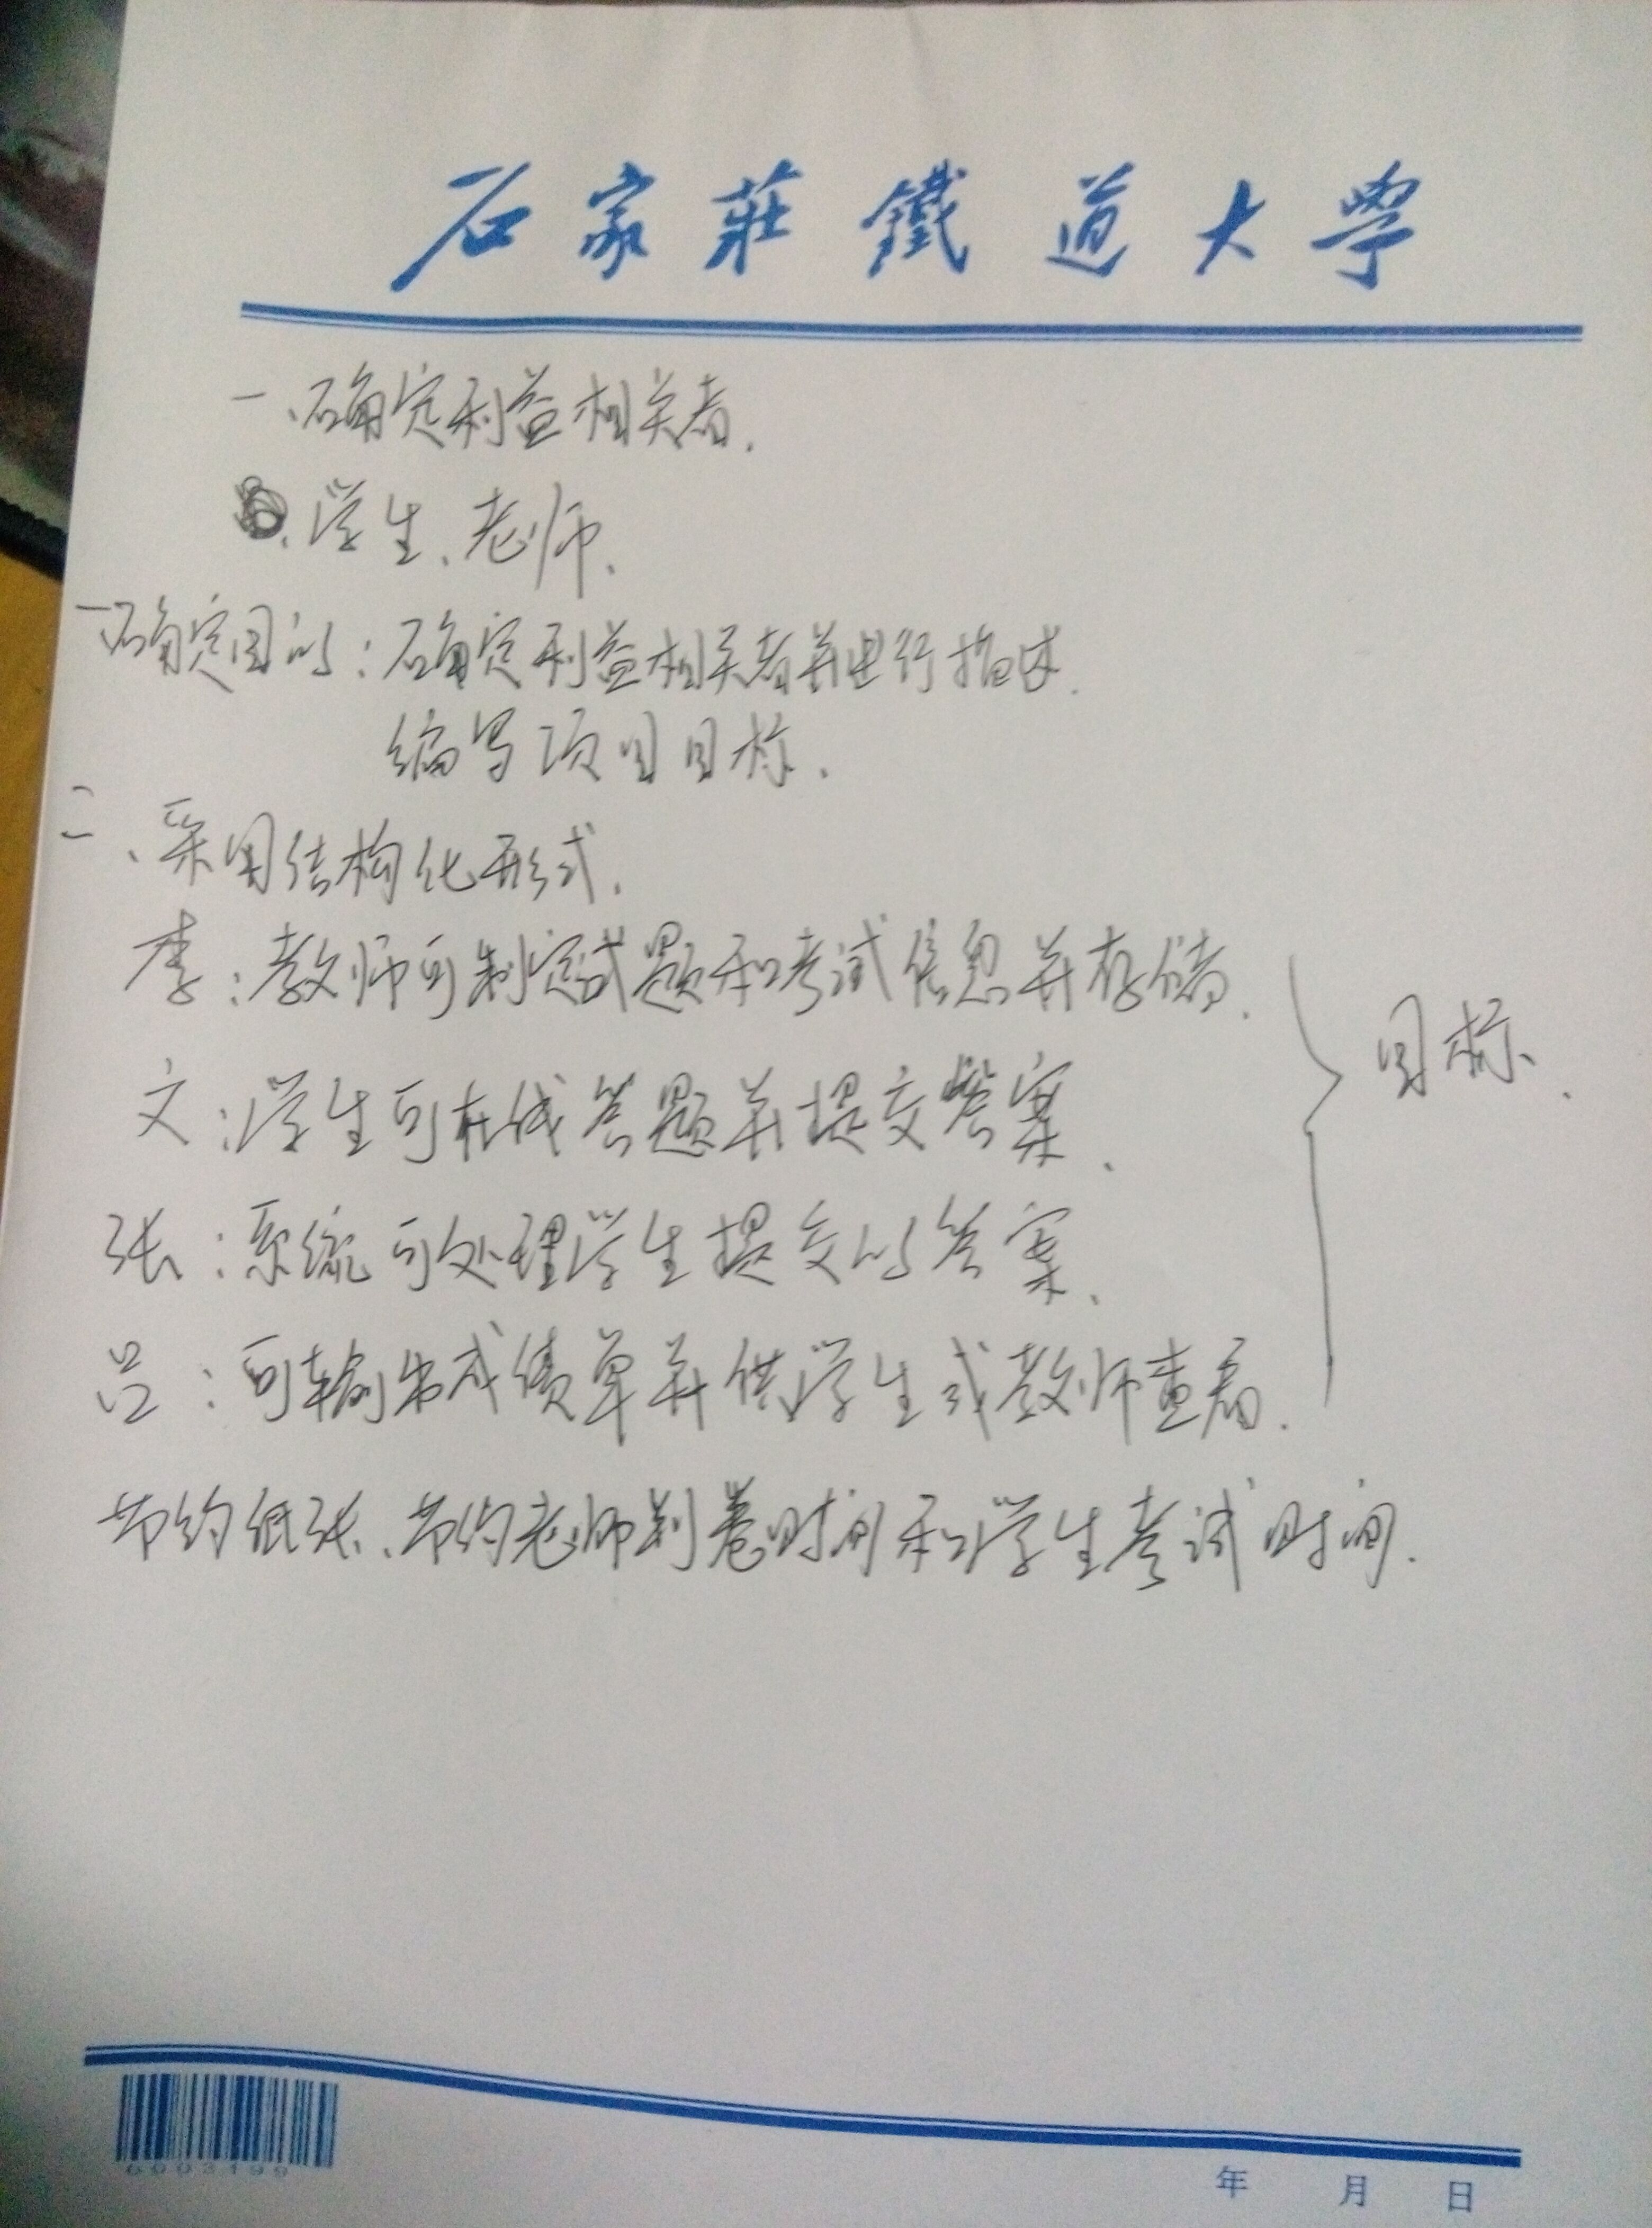 石家莊鐵道大學
一、确定利益相关者.
学生、老师.
一、确定目的：确定利益相关者并进行描述.
编写项目目标.
二、采用结构化形式.
李：教师可制定试题和考试信息并存储.
文：学生可在线答题并提交答案.
目标.
张：系统可处理学生提交的答案.
吕：可输出成绩单并供学生或教师查看.
节约纸张、节约老师判卷时间和学生考试时间.
6003199
年 月 日